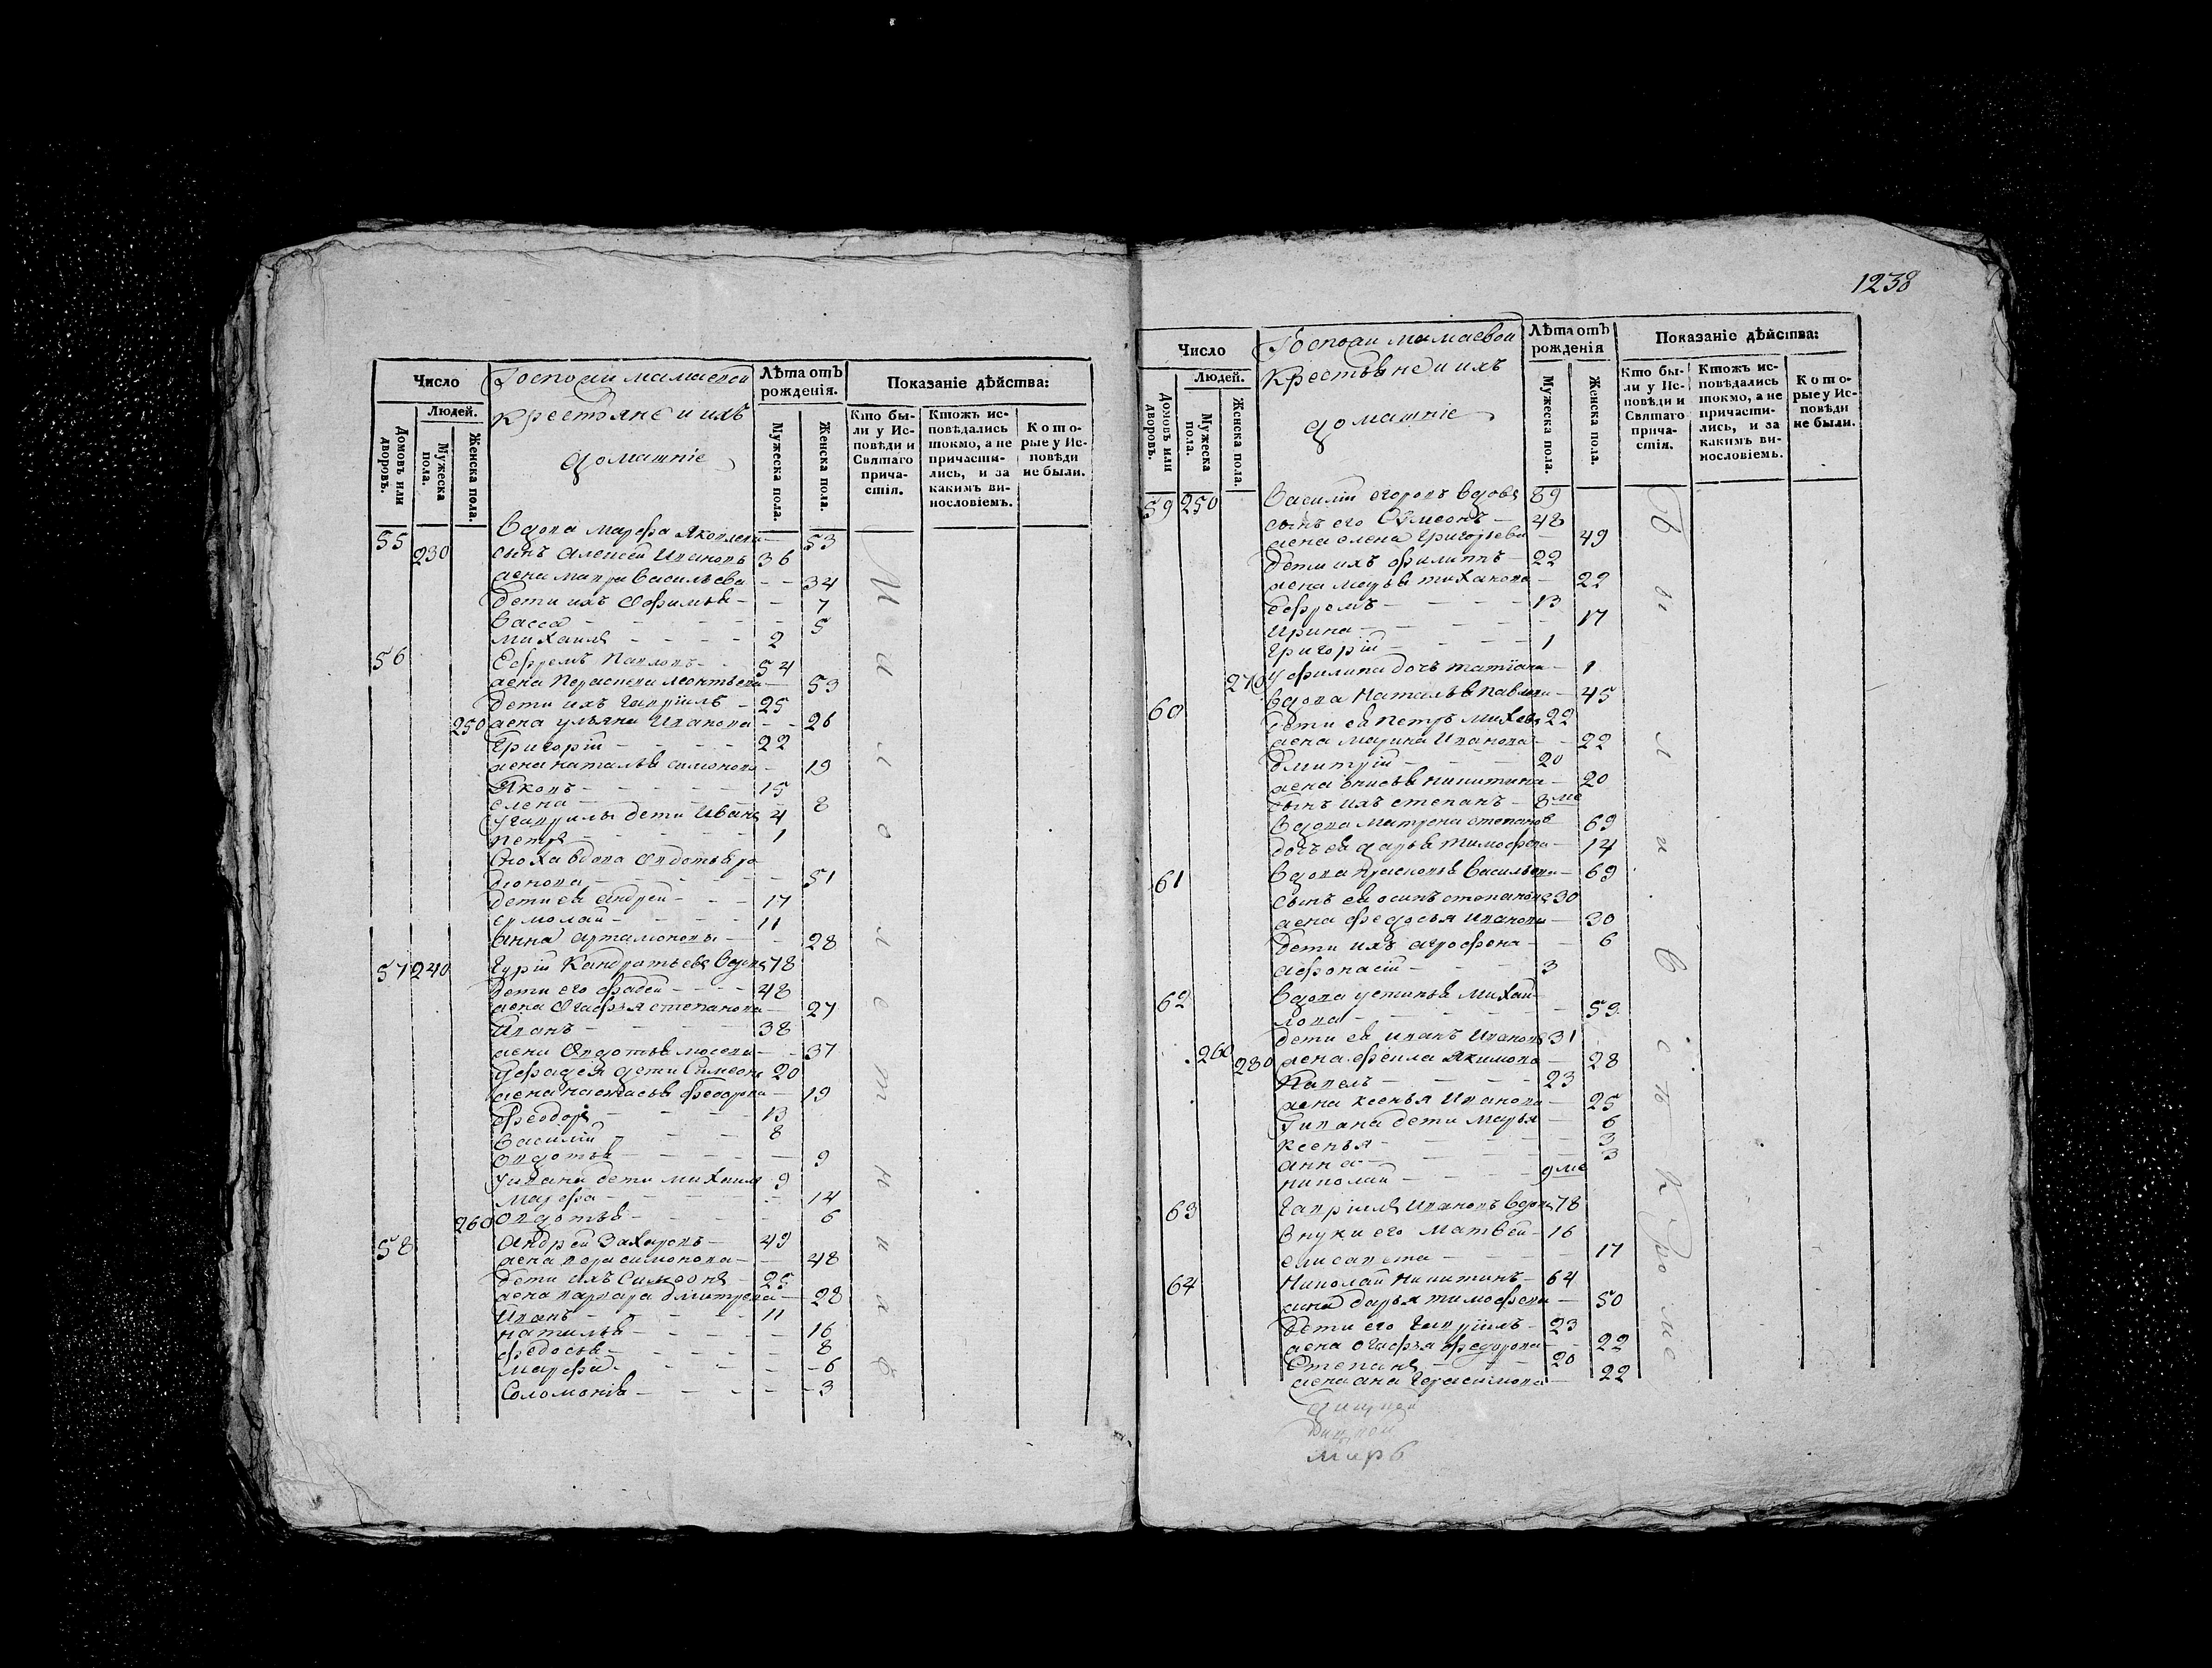 Число
Людей.
Домовъ или дворовъ.
Мужеска пола.
Женска пола.
Господи мамаевой
крестьяне и ихъ
домашніе
Лѣта отъ рожденія.
Мужеска пола.
Женска пола.
Показаніе дѣйства:
Кто были у Исповѣди и Святаго причастія.
Ктожъ исповѣдались токмо, а не причастились, и за какимъ винословіемъ.
Которые у Исповѣди не были.
55 вдова Марфа Яковлева — 53
230 сынъ Алексей Ивановъ 36
жена Мавра Васильева — 34
дети ихъ Офимья — 7
Васса — 5
Михаилъ — 2
56 Ефремъ Павловъ — 54
жена Пераскева Леонтьева — 53
дети ихъ Гавріилъ — 25
250 жена Ульяна Иванова — 26
Григорій — 22
жена Наталья Симонова — 19
Яковъ — 15
Елена — 8
У Гаврилы дети Иванъ 4
Петръ — 1
Сноха вдова Овдотья Ро
дионова — 51
дети ея Андрей — 17
Ермолай — 11
Анна Артамонова — 28
57 240 Гурій Кандратьевъ вдовъ 78
дети его Фадей — 48
жена Огафья Степанова — 27
Иванъ — 38
жена Овдотья Мосеева — 37
У Фадея дети Симеонъ 20
жена Настасья Феодорова — 19
Феодоръ — 13
Василій — 8
Овдотья — 9
У Ивана дети Михаилъ 9
Марфа — 14
260 Овдотья — 6
58 Андрей Захаровъ — 49
жена — 48
дети ихъ Симеонъ — 25
жена Варвара Дмитрева — 28
Иванъ — 11
Наталья — 16
Федосья — 8
Марфа — 6
Соломонія — 3
1238
Число
Людей.
Домовъ или дворовъ.
Мужеска пола.
Женска пола.
Господи мамаевой
крестьяне и ихъ
домашніе
Лѣта отъ рожденія
Мужеска пола.
Женска пола.
Показаніе дѣйства:
Кто были у Исповѣди и Святаго причастія.
Ктожъ исповѣдались токмо, а не причастились, и за какимъ винословіемъ.
Которые у Исповѣди не были.
59 250 Василій Егоровъ вдовъ 89
сынъ его Симеонъ — 48
жена Елена Григорьева — 49
дети ихъ Филиппъ — 22
жена Марья Тиханова — 22
Ефремъ — 13
Ирина — 17
Григорій — 1
270 У Филипа дочь Татіана — 1
60 вдова Наталья Павлова — 45
дети ея Петръ 22
жена Марина Иванова — 22
Дмитрій — 20
жена Анисья Никитина — 20
сынъ ихъ Степанъ — 8 ме
вдова Матрена Степанова 69
дочь ея Дарья Тимофеева — 14
61 вдова Прасковья Васильева — 69
сынъ ея Осипъ Степановъ 30
жена Федосья Иванова — 30
дети ихъ Агрофена — 6
Афонасій — 3
62 вдова Устинья Михай
лова — 59
дети ея Иванъ Ивановъ 31
260 280 жена Якимова — 28
Павелъ — 23
жена Ксенья Иванова — 25
У Ивана дети Марья — 6
Ксенья — 3
Анна — 3
Николай — 9 ме
63 Гавріилъ Ивановъ вдовъ 78
внуки его Матвей — 16
Елисавета — 17
64 Николай Никитинъ — 64
жена Дарья Тимофеева — 50
дети его Гавріилъ — 23
жена Огафья Федорова — 22
Степанъ — 20
жена Ана Герасимова — 22